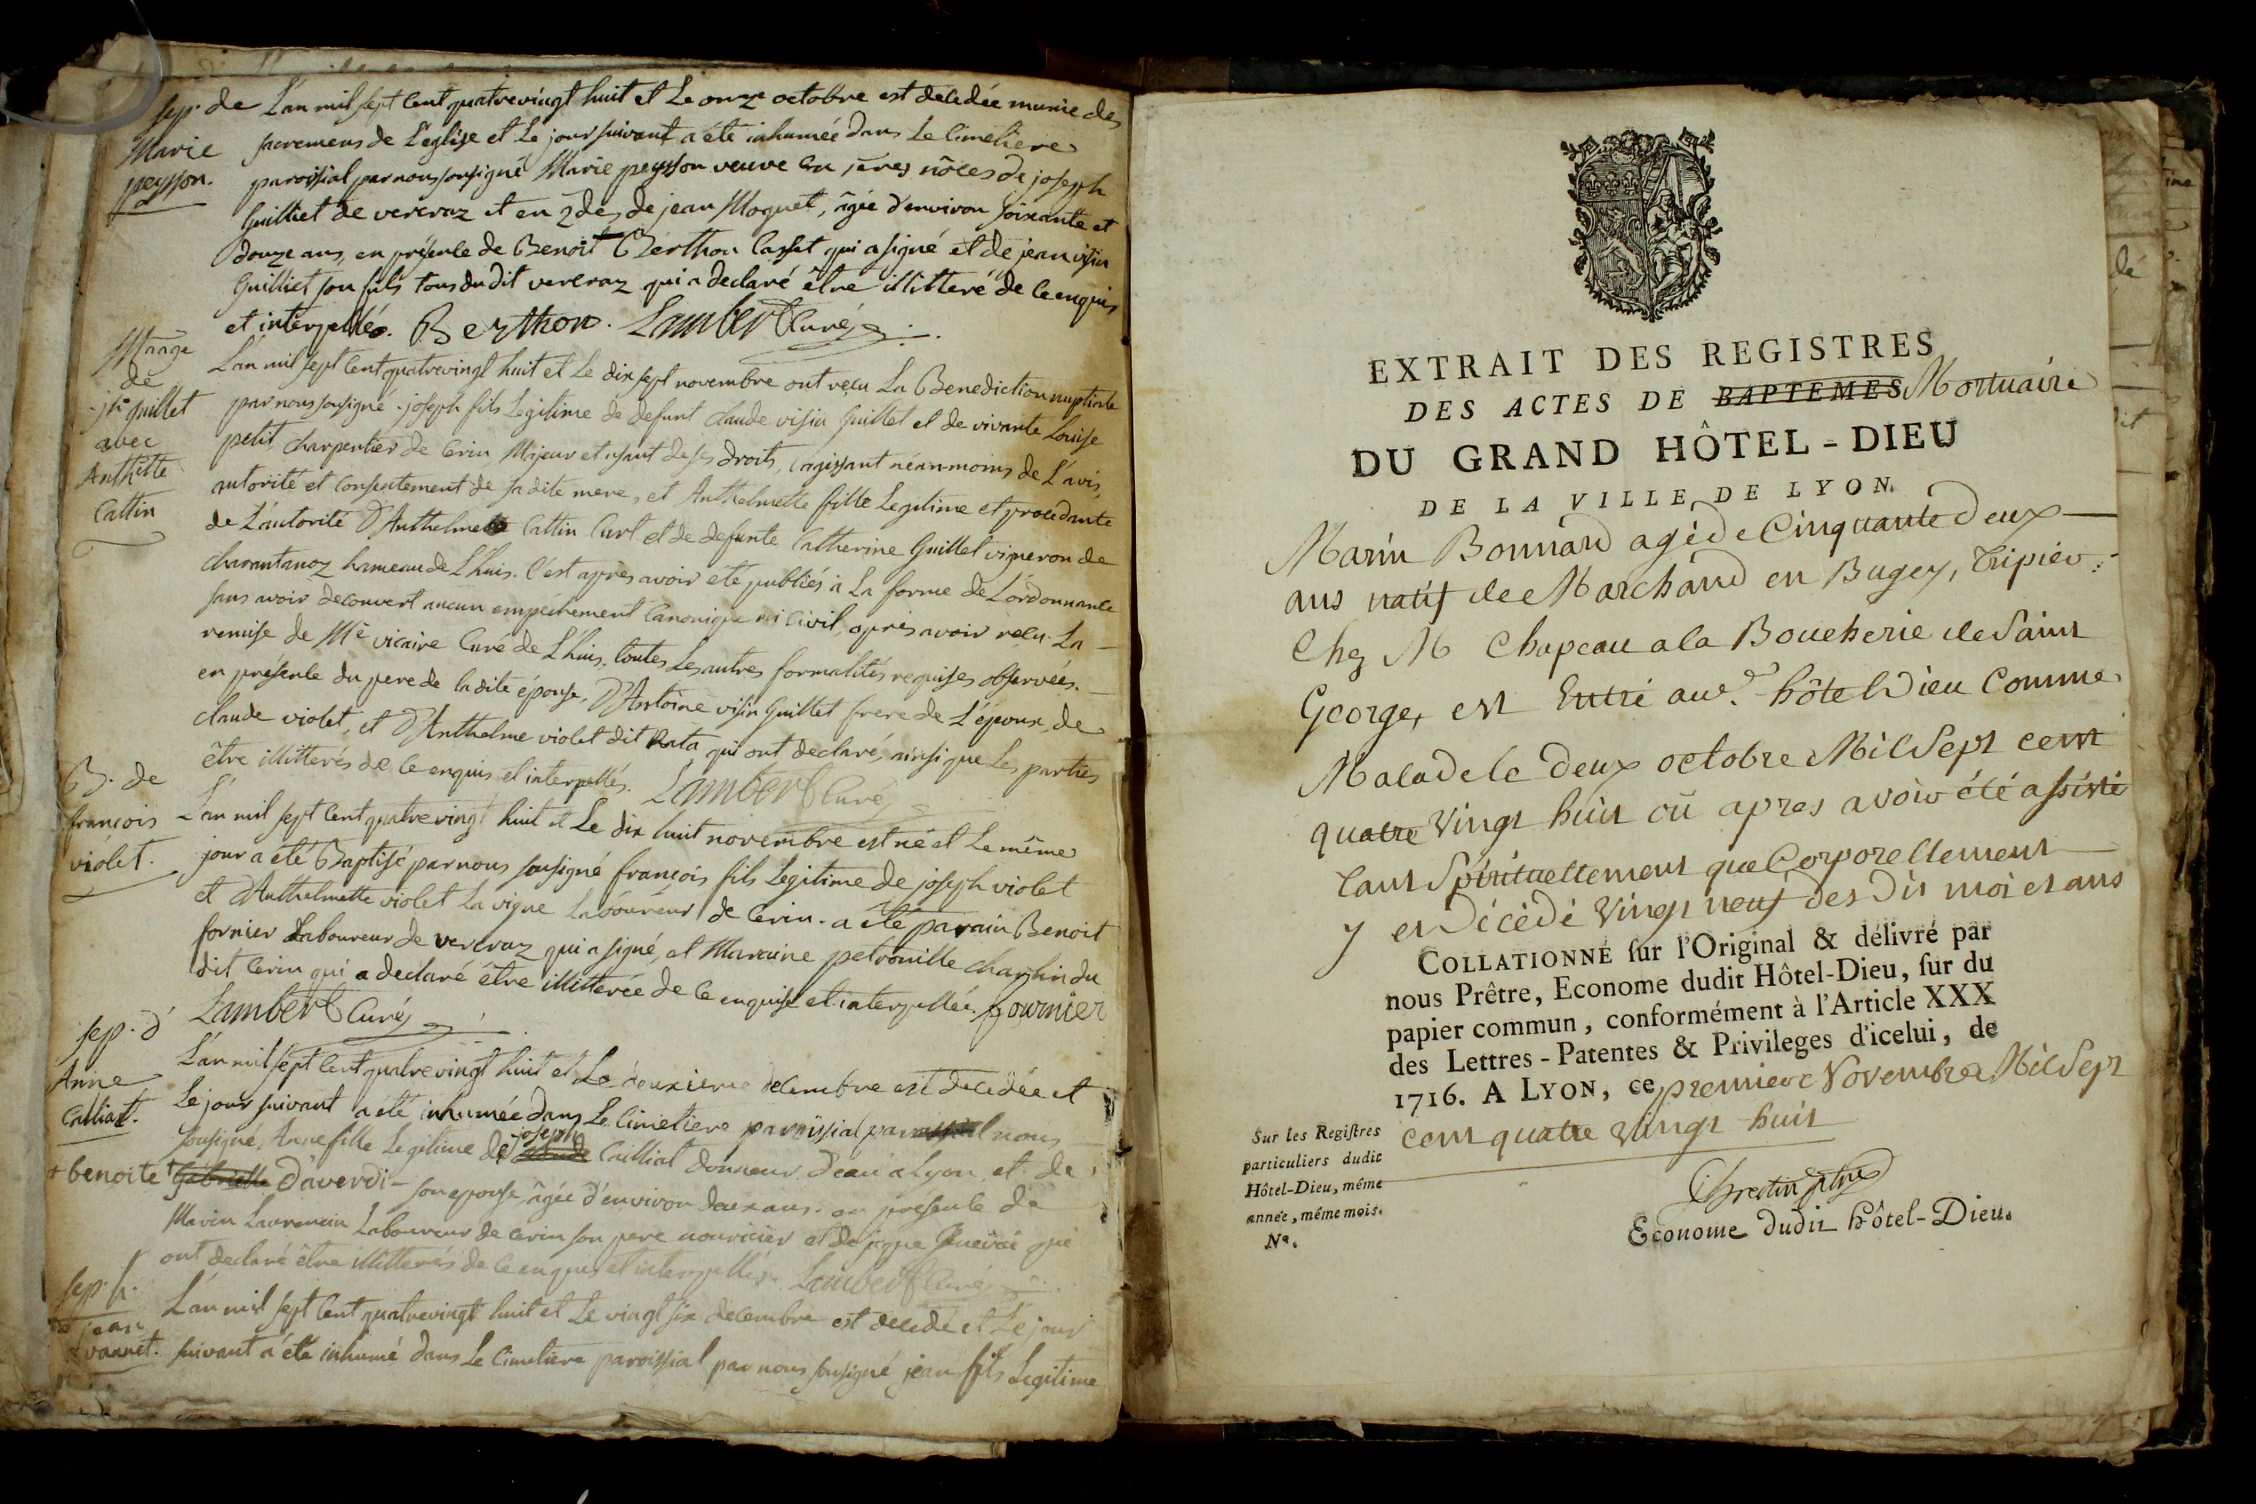 sep. de
Marie
peysson.
L'an mil sept cent quatrevingt huit et Le onze octobre est decedée munie des
sacremens de L'eglise et Le jour suivant a été inhumée dans Le Cimetiere
paroissial par nous sousigné Marie peysson veuve en 1eres nôces de joseph
Guilliet de vercraz et en 2des de jean Moquet, âgée d'environ soixante et
douze ans, en présence de Benoit Berthon Casset qui a signé et de jean visin
Guilliet son fils tous du dit vercraz qui a declaré être illitteré de ce enquis
et interpellé. Berthon. Lambert Curé
Mâage
de
jh guillet
avec
Anthtte
Cattin
L'an mil sept cent quatrevingt huit et Le dix sept novembre ont reçu La Benediction nuptiale
par nous sousigné joseph fils Legitime de defunt claude visin Guillet et de vivante Louise
petit charpentier de Cerin, Majeur et usant de ses droits, agissant néanmoins de L'avis,
autorité et consentement de sa dite mere, et Anthelmette fille Legitime et procedante
de L'autorité D'Anthelme Cattin Curt et de defunte Catherine Guillet vigneron de
charantanoz hameau de L'huis. C'est après avoir été publiés à La forme de L'ordonnance
sans avoir decouvert aucun empêchement Canonique ni Civil, après avoir reçu La
remise de Mre vicaire Curé de L'huis, toutes Les autres formalités requises observées.
en présence du pere de la dite épouse, D'Antoine visin Guillet frere de L'époux, de
claude violet, et D'Anthelme violet dit Rata qui ont declaré, ainsi que Les parties
être illitterés de ce enquis et interpellés. Lambert Curé
B. de
francois
violet.
L'an mil sept cent quatrevingt huit et Le dix huit novembre est né et Le même
jour a été Baptisé par nous sousigné françois fils Legitime de joseph violet
et d'Anthelmette violet La vigne Laboureur de Cerin. a été parain Benoit
fornier Laboureur de vercraz qui a signé, et Maraine petronille charlin du
dit Cerin qui a declaré être illitterée de ce enquise et interpellée. fournier
Lambert Curé
sep. d'
Anne
Cailliat.
L'an mil sept cent quatrevingt huit et Le deuxieme decembre est decedée et
Le jour suivant a été inhumée dans Le Cimetiere paroissial par nous
sousigné, Anne fille Legitime de joseph Cailliat donneur d'eau a Lyon, et de
+ benoite + Gabrielle D'averdi son epouse âgée d'environ deux ans. en présence de
Marin Laurencin Laboureur de Cerin son pere nouricier et de qui
ont declaré être illitterés de ce enquis et interpellés. Lambert Curé
sep. h.
jean
L'an mil sept cent quatrevingt huit et Le vingt six decembre est decedé et Le jour
suivant a été inhumé dans Le Cimetiere paroissial par nous sousigné jean fils Legitime
EXTRAIT DES REGISTRES
DES ACTES DE BAPTEMES Mortuaire
DU GRAND HÔTEL-DIEU
DE LA VILLE DE LYON.
Marin Bonnard agé de Cinquante deux
ans natif de Marchand en Bugey, tripier
Chez M Chapeau a la Boucherie de Saint
George, est Entré aud. hôtel Dieu Comme
Malade le deux octobre Mil Sept cent
quatre vingt huit où apres avoir été assisté
tant Spirituellement que Corporellement
y est décédé vingt neuf des dit moi et ans
COLLATIONNÉ sur l'Original & délivré par
nous Prêtre, Econome dudit Hôtel-Dieu, sur du
papier commun, conformément à l'Article XXX
des Lettres-Patentes & Privileges d'icelui, de
1716. A LYON, ce premier Novembre Mil Sept
cent quatre vingt huit
Sur les Registres
particuliers dudit
Hôtel-Dieu, même
année, même mois.
No.
Econome dudit hôtel-Dieu.